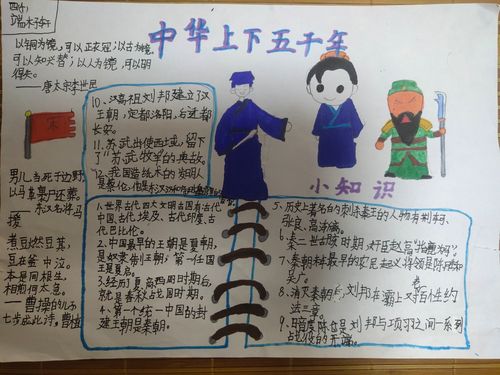 四(1)
端木子轩
中华上下五千年
以铜为镜,可以正衣冠;以古为镜,
可以知兴替;以人为镜,可以明
得失。
——唐太宗李世民
宋
男儿当死于边野,
以马革裹尸还葬。
——东汉名将马
援
煮豆燃豆萁,
豆在釜中泣。
本是同根生,
相煎何太急。
——曹操的儿子
七步成此诗。曹植
10、汉高祖刘邦建立了汉
王朝,定都洛阳,后迁都
长安。
11.苏武出使西域,留下
了"苏武牧羊"的典故。
12.我国造纸术的发明人
是蔡伦,他是
小知识
1.世界古代四大文明古国有古代
中国、古代埃及、古代印度、古
代巴比伦。
2.中国最早的王朝是夏朝,
是奴隶制王朝,第一位国
王是夏启。
3.经历夏商西周时期后,
就是春秋战国时期。
4、第一个统一中国的封
建王朝是秦朝。
5、历史上著名的刺杀秦王的人物有荆轲、
张良、高渐离。
6.秦二世胡亥时期,奸臣赵高"指鹿为马"。
7、秦朝末年最早的农民起义将领是陈胜和
吴广。
8、消灭秦朝后,刘邦在灞上与百姓约
法三章。
9、暗度陈仓是刘邦与项羽之间一系列
战役的开端。